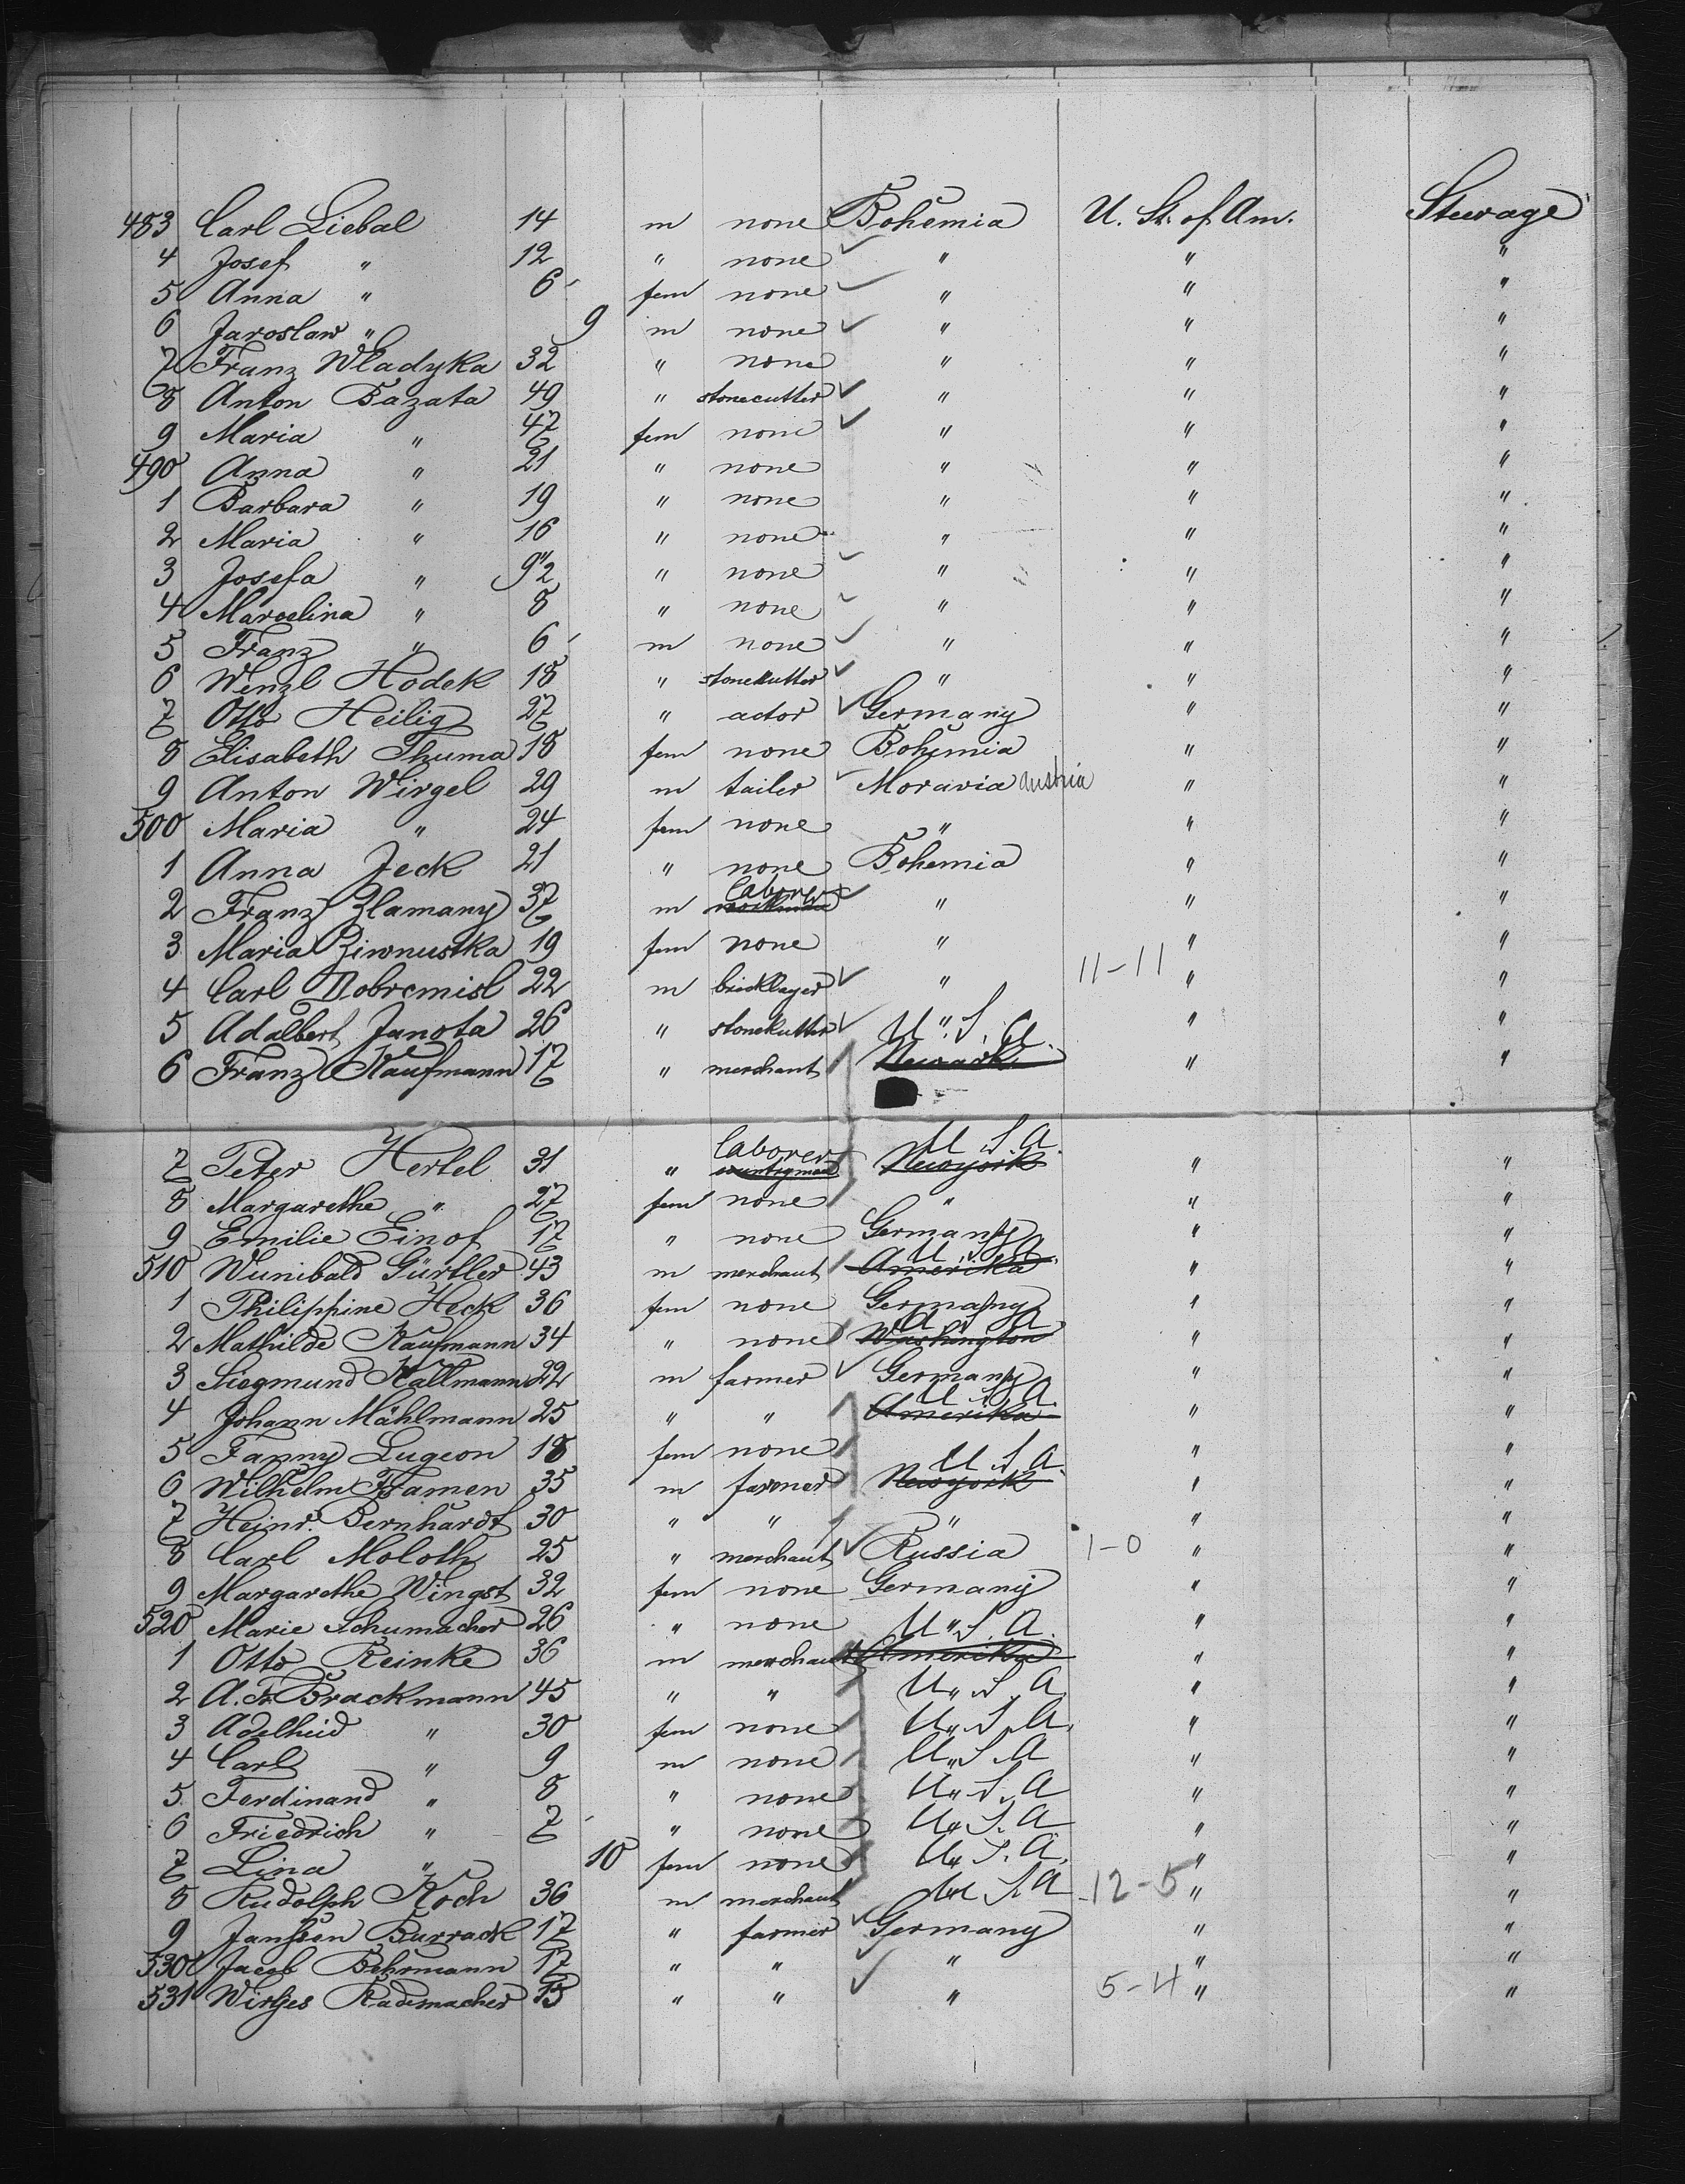 483 Carl Liebal 14 m none Bohemia U. St. of Am. Steerage
4 Josef " 12 " none " " "
5 Anna " 6 fem none " " "
6 Jaroslaw " 9 m none " " "
7 Franz Wladyka 32 " none " " "
8 Anton Bazata 49 " stonecutter " " "
9 Maria " 47 fem none " " "
490 Anna " 21 " none " " "
1 Barbara " 19 " none " " "
2 Maria " 16 " none " " "
3 Josefa " " none " " "
4 Marcelina " 8 " none " " "
5 Franz " 6 m none " " "
6 Wenzl Hodek 18 " stonekutter " " "
7 Otto Heilig 27 " actor Germany " "
8 Elisabeth Thuma 18 fem none Bohemia " "
9 Anton Wirgel 29 m tailer Moravia Austria " "
500 Maria " 24 fem none " " "
1 Anna Jeck 21 " none Bohemia " "
2 Franz Zlamany 37 m laborer " " "
3 Maria Ziwnustka 19 fem none " " "
4 Carl Dobromisl 22 m bricklayer " 11-11 " "
5 Adalbert Janota 26 " stonekutter " " "
6 Franz Kaufmann 17 " merchant U.S.A. Newark " "
7 Peter Hertel 31 " laborer U.S.A. Newyork " "
8 Margarethe " 27 fem none " " "
9 Emilie Einof 17 " none Germany " "
510 Wunibald Gürtler 43 m merchant U.S.A. Amerika " "
1 Philippine Heck 36 fem none Germany " "
2 Mathilde Kaufmann 34 " none U.S.A. Washington " "
3 Siegmund Kallmann 22 m farmer Germany " "
4 Johann Mählmann 25 " " U.S.A. Amerika " "
5 Fanny Lugeon 18 fem none " "
6 Wilhelm Framen 35 m farmer U.S.A. Newyork " "
7 Heinr. Bernhardt 30 " " " " "
8 Carl Moloth 25 " merchant Russia 1-0 " "
9 Margarethe Wingst 32 fem none Germany " "
520 Marie Schumacher 26 " none " " "
1 Otto Reinke 36 m merchant U.S.A. Amerika " "
2 A. Fr. Brackmann 45 " " U.S.A. " "
3 Adelheid " 30 fem none U.S.A. " "
4 Carl " 9 m none U.S.A " "
5 Ferdinand " 8 " none U.S.A " "
6 Friedrich " 7 " none U.S.A " "
7 Lina " 10 fem none U.S.A. " "
8 Rudolph Koch 36 m merchant U.S.A 12-5 " "
9 Janssen Burrack 17 " farmer Germany " "
530 Jacob Behrmann 17 " " " " "
531 Wirtjes Rademacher 15 " " " 5-4 " "